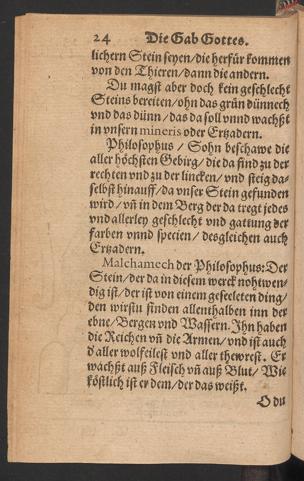 24 Die Gab Gottes.
lichern Stein seyen/die herfür kommen
von den Thieren/dann die andern.
Du magst aber doch kein geschlecht
Steins bereiten/ohn das grün dünnech
vnd das dünn/das da soll vnnd wachßt
in vnsern mineris oder Ertzadern.
Philosophus / Sohn beschawe die
aller höchsten Gebirg/die da sind zu der
rechten vnd zu der lincken/vnd steig da-
selbst hinauff/da vnser Stein gefunden
wird/vñ in dem Berg der da tregt jedes
vnd allerley geschlecht vnd gattung der
farben vnnd specien/desgleichen auch
Ertzadern.
Malchamech der Philosophus: Der
Stein/der da in diesem werck nohtwen-
dig ist/der ist von einem geseeleten ding/
den wirstu finden allenthalben inn der
ebne/Bergen vnd Wassern. Ihn haben
die Reichen vñ die Armen/vnd ist auch
d'aller wolfeilest vnd aller thewrest. Er
wachßt auß Fleisch vñ auß Blut/Wie
köstlich ist er dem/der das weißt.
O du